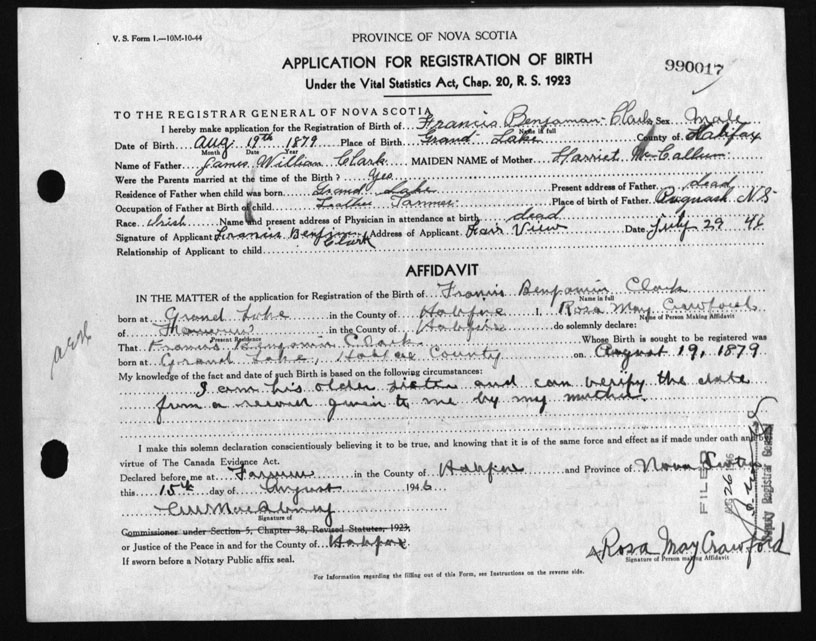 V. S. Form 1.—10M-10-44
PROVINCE OF NOVA SCOTIA
APPLICATION FOR REGISTRATION OF BIRTH
Under the Vital Statistics Act, Chap. 20, R. S. 1923
990017
TO THE REGISTRAR GENERAL OF NOVA SCOTIA
I hereby make application for the Registration of Birth of Francis Benjaman Clark Sex Male
Name in full
Date of Birth Aug 19th 1879 Place of Birth Grand Lake County of Halifax
Month Date Year
Name of Father James William Clark MAIDEN NAME of Mother Harriet McCallum
Were the Parents married at the time of the Birth? Yes
Residence of Father when child was born Grand Lake Present address of Father dead
Occupation of Father at Birth of child Tanner Place of birth of Father Pugwash N.S
Race Irish Name and present address of Physician in attendance at birth dead
Signature of Applicant Francis Benjimn Clark Address of Applicant Fair View Date July 29 46
Relationship of Applicant to child
AFFIDAVIT
IN THE MATTER of the application for Registration of the Birth of Francis Benjamin Clark
Name in full
born at Grand Lake in the County of Halifax I, Rosa May Crawford
Name of Person Making Affidavit
of in the County of Halifax do solemnly declare:
Present Residence
That Francis Benjamin Clark Whose Birth is sought to be registered was
born at Grand Lake, Halifax County on August 19, 1879
My knowledge of the fact and date of such Birth is based on the following circumstances:
I am his older sister and can verify the date
from a record given to me by my mother.
I make this solemn declaration conscientiously believing it to be true, and knowing that it is of the same force and effect as if made under oath and by
virtue of The Canada Evidence Act.
Declared before me at in the County of Halifax and Province of Nova Scotia
this 15th day of August 1946
Signature of
Commissioner under Section 5, Chapter 38, Revised Statutes, 1923,
or Justice of the Peace in and for the County of Halifax
If sworn before a Notary Public affix seal.
Rosa May Crawford
Signature of Person making Affidavit
For Information regarding the filling out of this Form, see Instructions on the reverse side.
FILED
Deputy Registrar General